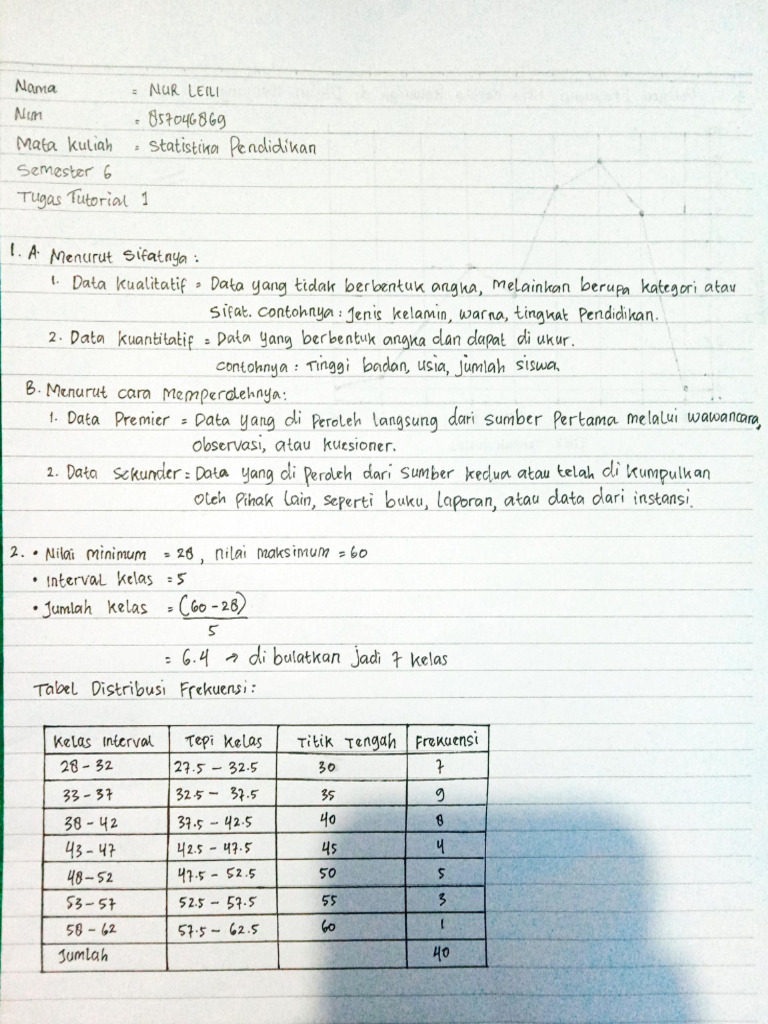 Nama = NUR LEILI
Nim = 857046869
Mata Kuliah = Statistika Pendidikan
Semester 6
Tugas Tutorial 1
1. A. Menurut Sifatnya :
1. Data Kualitatif = Data yang tidak berbentuk angka, Melainkan berupa kategori atau
Sifat. Contohnya : Jenis kelamin, warna, tingkat Pendidikan.
2. Data Kuantitatif = Data yang berbentuk angka dan dapat di ukur.
Contohnya : Tinggi badan, usia, jumlah siswa.
B. Menurut cara Memperolehnya :
1. Data Premier = Data yang di Peroleh langsung dari sumber Pertama melalui wawancara,
observasi, atau kuesioner.
2. Data Sekunder = Data yang di peroleh dari sumber kedua atau telah di kumpulkan
oleh Pihak lain, seperti buku, laporan, atau data dari instansi.
2. • Nilai minimum = 28, nilai maksimum = 60
• Interval Kelas = 5
• Jumlah Kelas = (60 - 28)
5
= 6.4 → di bulatkan jadi 7 kelas
Tabel Distribusi Frekuensi :
Kelas Interval Tepi Kelas Titik Tengah Frekuensi
28 - 32 27.5 - 32.5 30 7
33 - 37 32.5 - 37.5 35 9
38 - 42 37.5 - 42.5 40 8
43 - 47 42.5 - 47.5 45 4
48 - 52 47.5 - 52.5 50 5
53 - 57 52.5 - 57.5 55 3
58 - 62 57.5 - 62.5 60 1
Jumlah 40